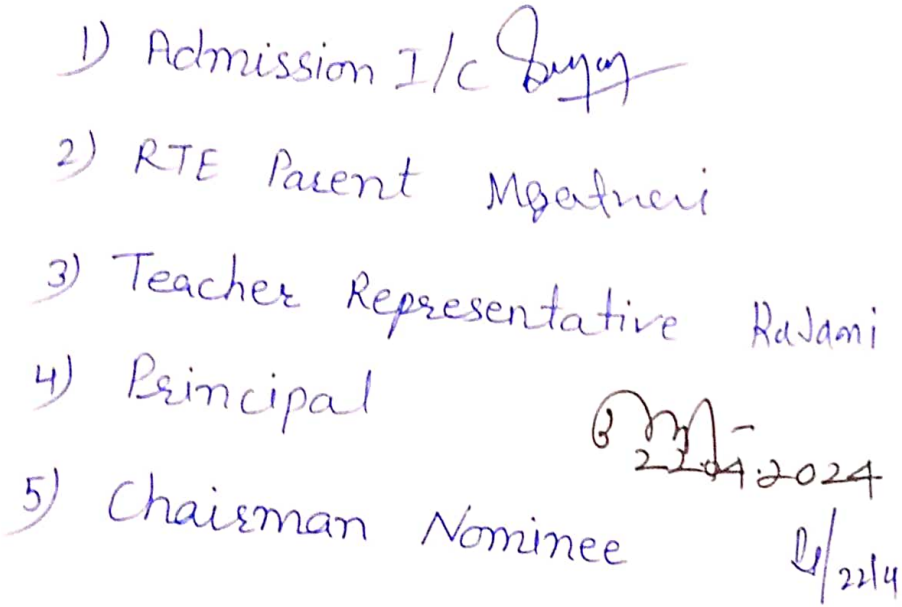 1) Admission I/c
2) RTE Parent
3) Teacher Representative Rajani
4) Principal
22.04.2024
5) Chairman Nominee
22/4